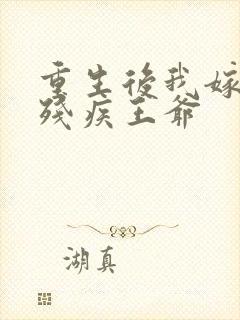 重生後我嫁
殘疾王爺
湖真